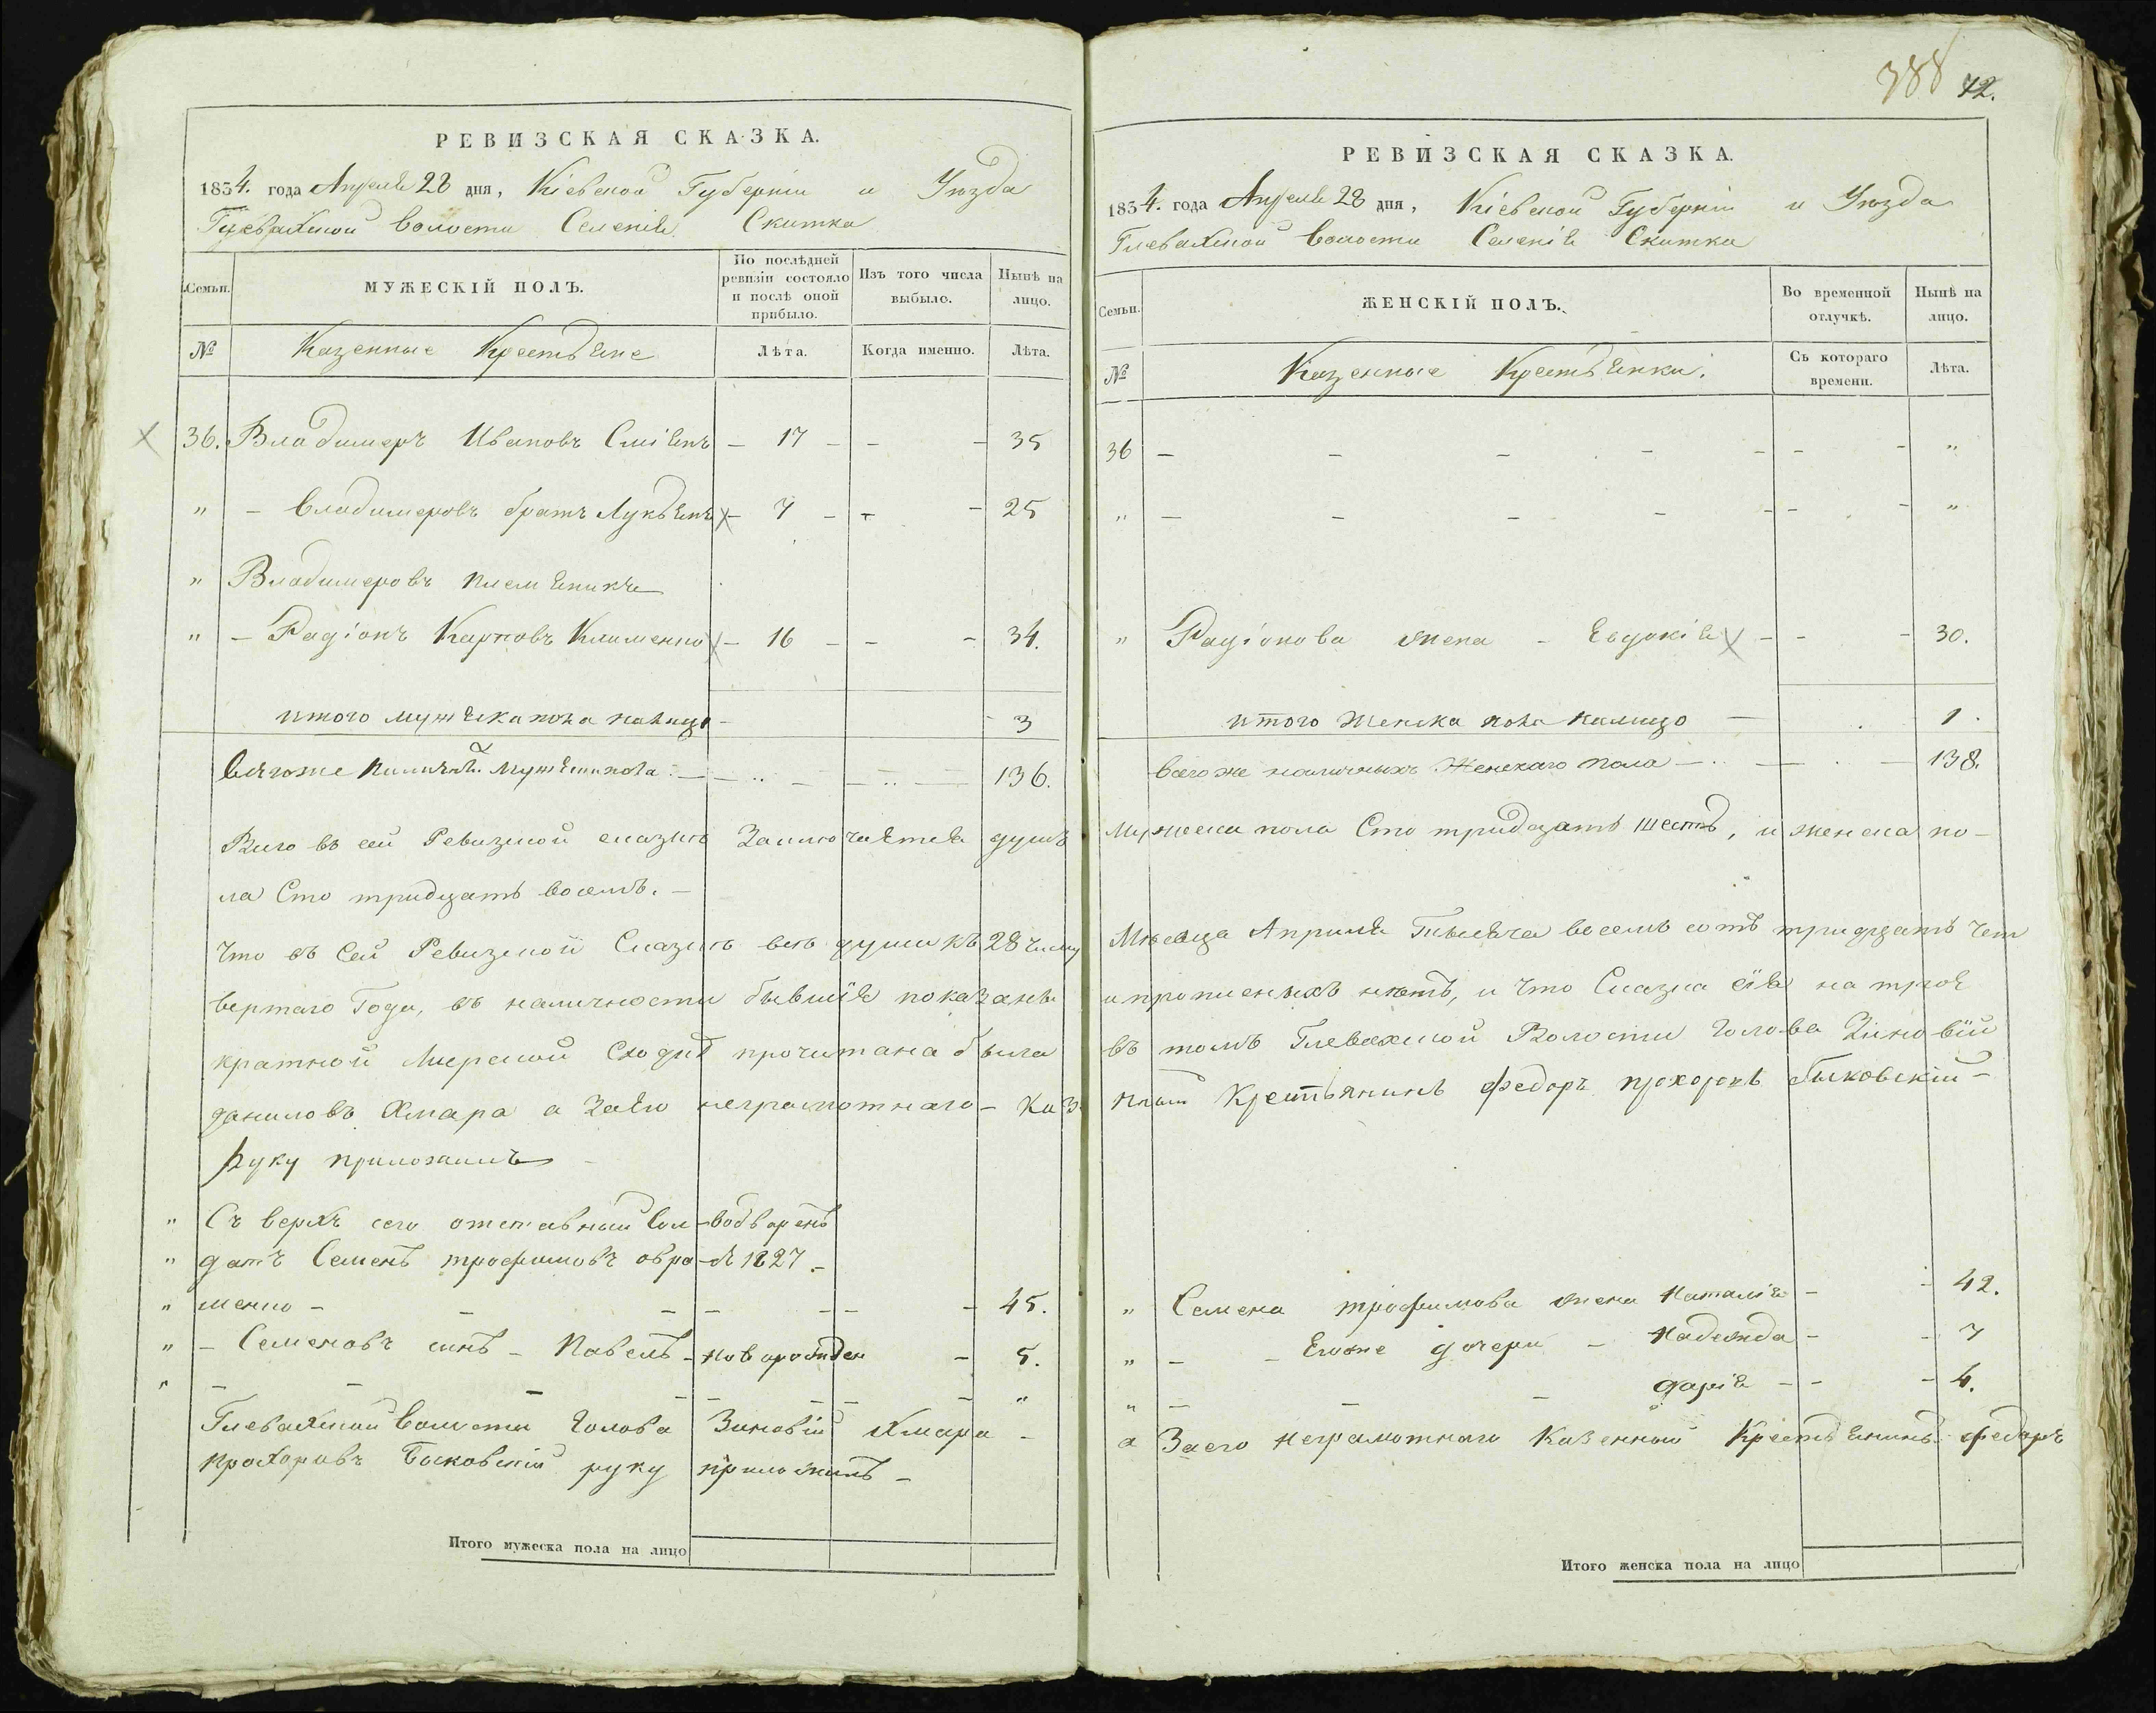 РЕВИЗСКАЯ СКАЗКА.
1834. года Апреля 28 дня, Кіевской Губерніи и Уезда
Глевахской волости Селенія Скитка
Семьи.
МУЖЕСКІЙ ПОЛЪ.
По послѣдней ревизіи состояло и послѣ оной прибыло.
Изъ того числа выбыло.
Нынѣ на лицо.
№ Казенные Крестьяне Лѣта. Когда именно. Лѣта.
36. Владимеръ Ивановъ - 17 - - - 35
" - Владимеровъ братъ Лукьянъ - 7 - - - 25
" Владимеровъ племяникъ
" - Радіонъ Карповъ Клименко - 16 - - - 34.
итого мужеска пола налицо - - 3
всегоже мужеска пола - 136.
Всего въ сей Ревизской сказке Заключается душъ
ла Сто тридцать восемъ. -
Что въ Сей Ревизской Сказке все души къ 28 числу
вертаго Года, въ наличности бывшія показаны
кратной Мирской Сходке прочитана была
даниловъ Хмара а заего неграмотнаго - каз
Руку приложилъ -
" Съ верхъ сего отставный Сол- водворенъ
" датъ Семенъ трофимовъ - въ 1827. -
" менко - - - - - - - 45.
" - Семеновъ синъ - Павелъ - новорожден - 5.
" - - - - - - - "
Глевахской волости Голова Зиновій Хмара -
прохоровъ Быковскій руку приложилъ -
Итого мужеска пола на лицо
388 72.
РЕВИЗСКАЯ СКАЗКА.
1834. года Апреля 28 дня, Кіевской Губерніи и Уезда
Глевахской волости Селенія Скитка
Семьи.
ЖЕНСКІЙ ПОЛЪ.
Во временной отлучкѣ.
Нынѣ на лицо.
№ Казенные Крестьянки. Съ котораго времени. Лѣта.
36 - - - - - - - "
" - - - - - - - "
" Радіонова жена - Евдокія - - - 30.
итого Женска пола налицо - 1.
всего же наличныхъ Женскаго пола - 138.
Мужеска пола Сто тридцать шесть, и женска по-
Месяца Апреля Тысяча восемъ сотъ тридцать чет
и прописныхъ нетъ, и что Сказка сія на трое
въ томъ Глевахской Волости Голова Зіновій
Крестьянинъ Федоръ прохоровъ Быковскій -
" Семена трофимова жена Наталія - - 42.
" - - Егоже дочери - Надежда - - 7
" - - - дарія - - - 4.
а Заего неграмотнаго Казенный Крестьянинъ федоръ
Итого женска пола на лицо